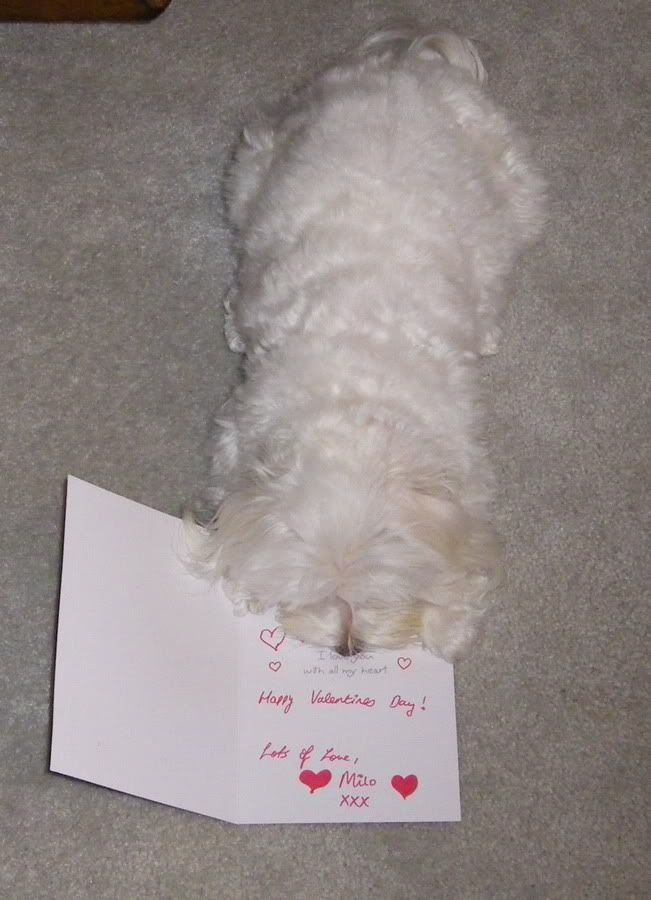 I love you
with all my heart
Happy Valentines Day!
Lots of Love,
Milo
xxx